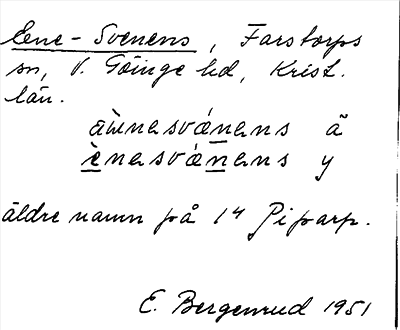 Ene-Svenens, Farstorps
sn, V. Göinge hd, Krist.
län.
äɪ̀nasvánans ä
ènasvánans y
äldre namn på 1⁄4 Piparp.
E. Bergenrud 1951